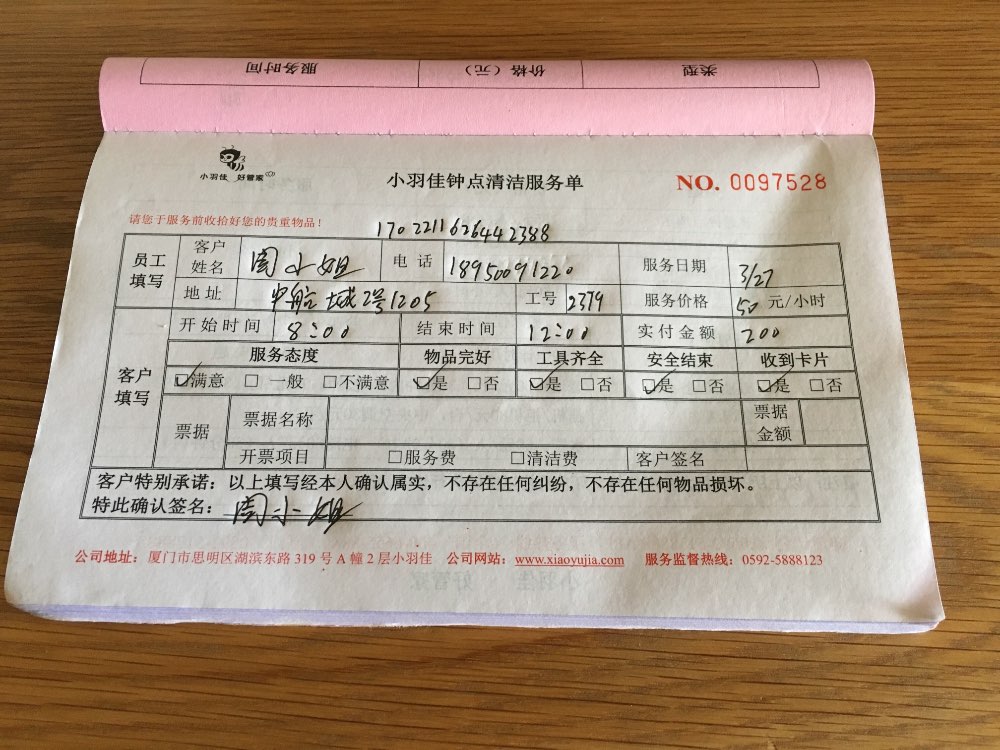 服务时间 价格（元） 类型
小羽佳 好管家
小羽佳钟点清洁服务单
NO. 0097528
请您于服务前收拾好您的贵重物品！
1702211626442388
员工填写 客户姓名 周小姐 电话 18950091220 服务日期 3/27
地址 中航城2号1205 工号 2379 服务价格 50 元/小时
客户填写 开始时间 8:00 结束时间 12:00 实付金额 200
服务态度 物品完好 工具齐全 安全结束 收到卡片
☑满意 □一般 □不满意 ☑是 □否 ☑是 □否 ☑是 □否 ☑是 □否
票据 票据名称 票据金额
开票项目 □服务费 □清洁费 客户签名
客户特别承诺：以上填写经本人确认属实，不存在任何纠纷，不存在任何物品损坏。
特此确认签名：周小姐
公司地址：厦门市思明区湖滨东路 319 号 A 幢 2 层小羽佳 公司网站：www.xiaoyujia.com 服务监督热线：0592-5888123